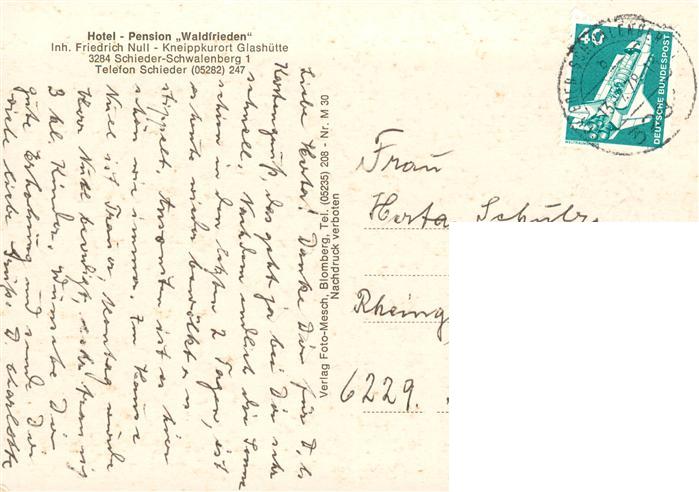 Hotel - Pension „Waldfrieden“
Inh. Friedrich Null - Kneippkurort Glashütte
3284 Schieder-Schwalenberg 1
Telefon Schieder (05282) 247
Liebe Herta! Danke Dir für D. lb
Kartengruß, das geht ja bei Dir sehr
schnell. Nachdem endlich die Sonne
schon in den letzten 2 Tagen, ist
es heute wieder bewölkt u.
Ansonsten ist es hier
schön wie immer. Im Hause
Null ist Trauer, Montag wurde
Herr Null beerdigt,
3 kl. Kinder. Wünsche Dir
gute Erholung und sende Dir
viele liebe Grüße. D. Charlotte
Verlag Foto-Mesch, Blomberg, Tel. (05235) 208 - Nr. M 30
Nachdruck verboten
40
DEUTSCHE BUNDESPOST
Frau
Herta Schulz
Rheing
6229